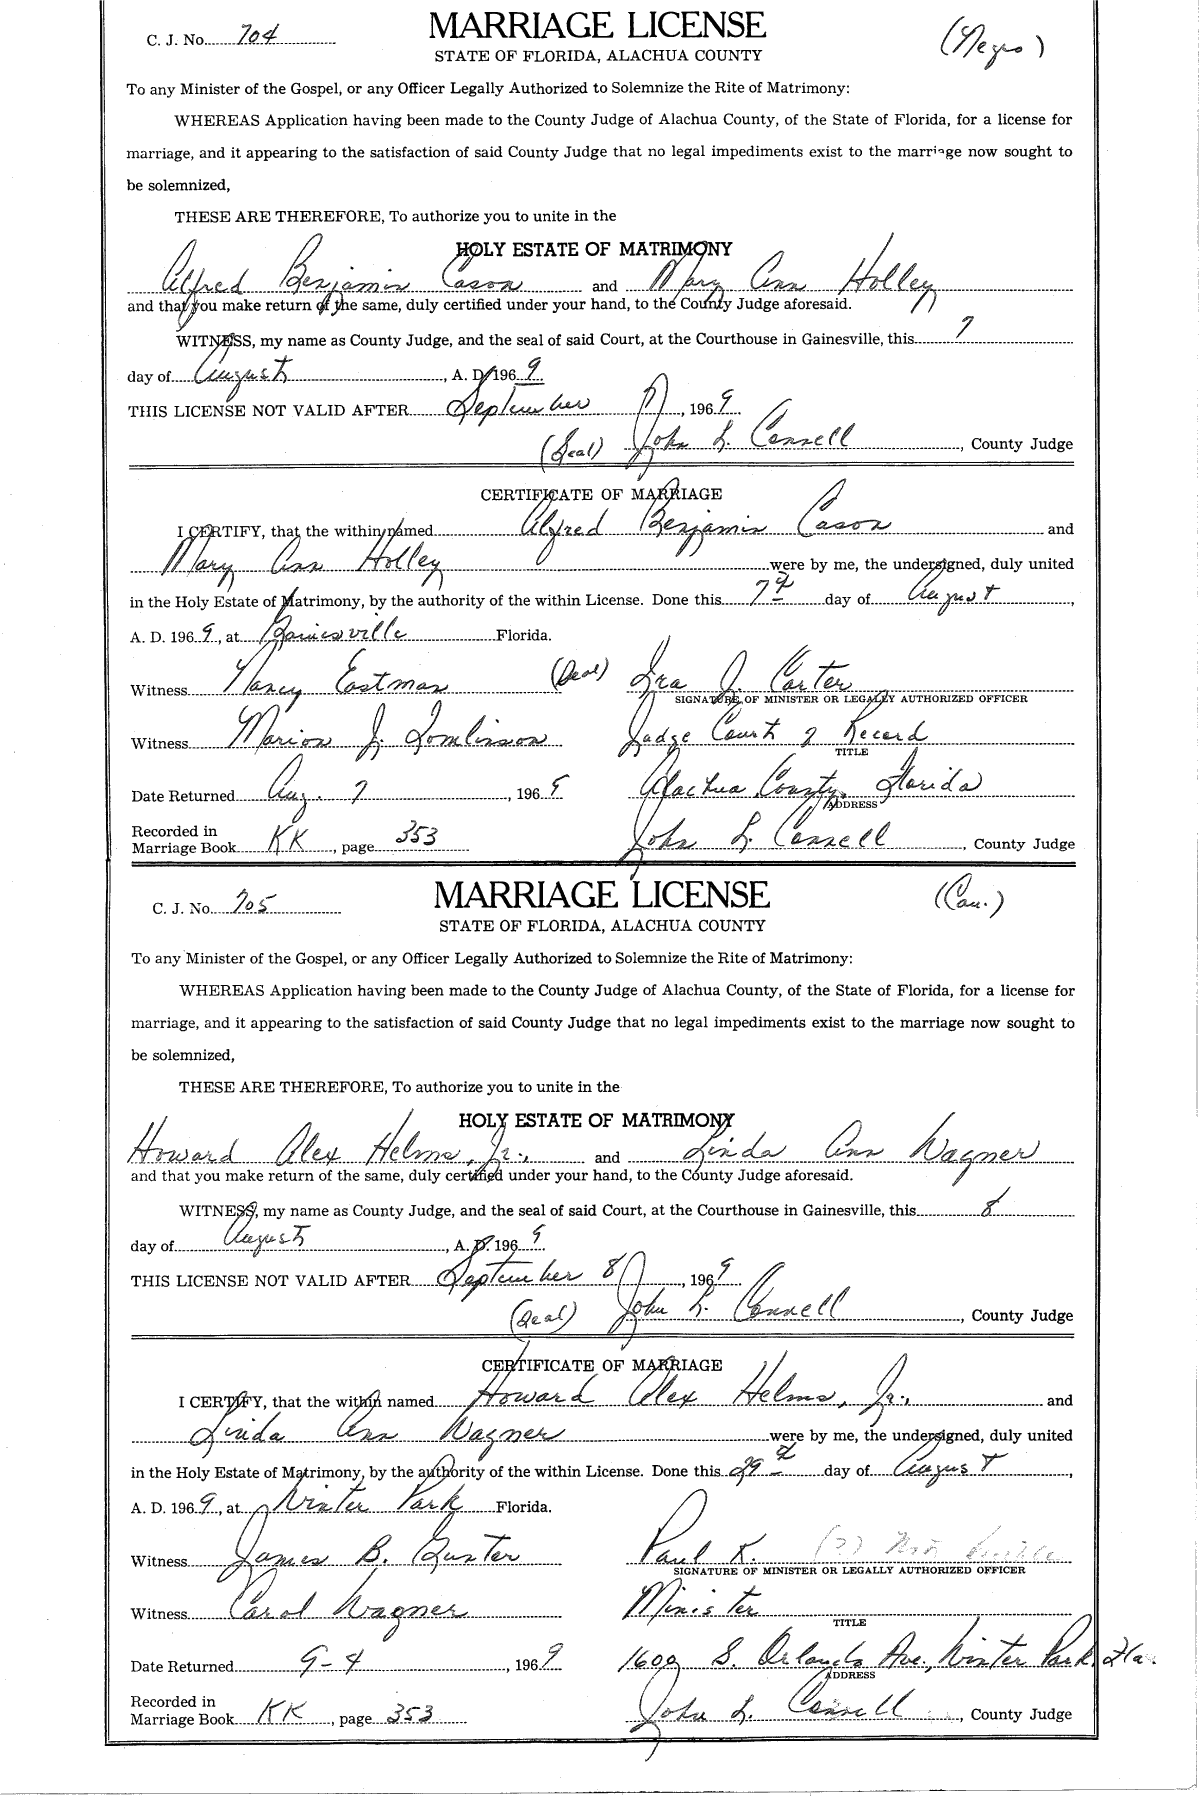 MARRIAGE LICENSE
C. J. No. 704 (Negro)
STATE OF FLORIDA, ALACHUA COUNTY
To any Minister of the Gospel, or any Officer Legally Authorized to Solemnize the Rite of Matrimony:
WHEREAS Application having been made to the County Judge of Alachua County, of the State of Florida, for a license for
marriage, and it appearing to the satisfaction of said County Judge that no legal impediments exist to the marriage now sought to
be solemnized,
THESE ARE THEREFORE, To authorize you to unite in the
HOLY ESTATE OF MATRIMONY
Alfred Benjamin Cason and Mary Ann Holley
and that you make return of the same, duly certified under your hand, to the County Judge aforesaid.
WITNESS, my name as County Judge, and the seal of said Court, at the Courthouse in Gainesville, this 7
day of August, A. D. 1969
THIS LICENSE NOT VALID AFTER September 7, 1969
(Seal) John L. Connell, County Judge
CERTIFICATE OF MARRIAGE
I CERTIFY, that the within named Alfred Benjamin Cason and
Mary Ann Holley were by me, the undersigned, duly united
in the Holy Estate of Matrimony, by the authority of the within License. Done this 7th day of August,
A. D. 1969, at Gainesville Florida.
Witness Nancy Eastman (Seal) Ira J. Carter
SIGNATURE OF MINISTER OR LEGALLY AUTHORIZED OFFICER
Witness Marion J. Tomlinson Judge Court of Record
TITLE
Date Returned Aug. 7, 1969 Alachua County, Florida
ADDRESS
Recorded in
Marriage Book KK, page 353 John L. Connell, County Judge
MARRIAGE LICENSE
C. J. No. 705 (Cau.)
STATE OF FLORIDA, ALACHUA COUNTY
To any Minister of the Gospel, or any Officer Legally Authorized to Solemnize the Rite of Matrimony:
WHEREAS Application having been made to the County Judge of Alachua County, of the State of Florida, for a license for
marriage, and it appearing to the satisfaction of said County Judge that no legal impediments exist to the marriage now sought to
be solemnized,
THESE ARE THEREFORE, To authorize you to unite in the
HOLY ESTATE OF MATRIMONY
Howard Alex Helms, Jr., and Linda Ann Wagner
and that you make return of the same, duly certified under your hand, to the County Judge aforesaid.
WITNESS, my name as County Judge, and the seal of said Court, at the Courthouse in Gainesville, this 8
day of August, A. D. 1969
THIS LICENSE NOT VALID AFTER September 8, 1969
(Seal) John L. Connell, County Judge
CERTIFICATE OF MARRIAGE
I CERTIFY, that the within named Howard Alex Helms, Jr., and
Linda Ann Wagner were by me, the undersigned, duly united
in the Holy Estate of Matrimony, by the authority of the within License. Done this 29th day of August,
A. D. 1969, at Winter Park Florida.
Witness James B. Gunter Paul K. (?)
SIGNATURE OF MINISTER OR LEGALLY AUTHORIZED OFFICER
Witness Carol Wagner Minister
TITLE
Date Returned 9-4, 1969 1609 S. Orlando Ave., Winter Park, Fla.
ADDRESS
Recorded in
Marriage Book KK, page 353 John L. Connell, County Judge